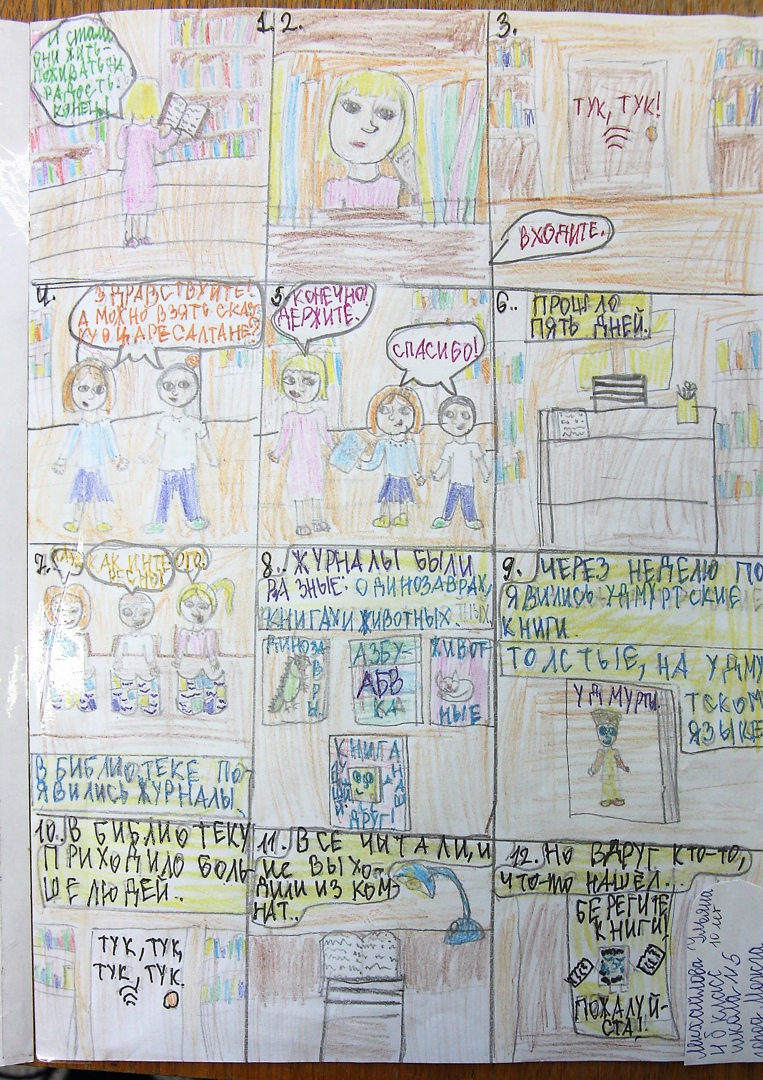 1.
И стали
они жить-
поживать на
радость.
Конец!
2.
3.
ТУК, ТУК!
ВХОДИТЕ.
4.
ЗДРАВСТВУЙТЕ!
А МОЖНО ВЗЯТЬ СКАЗ
КУ О ЦАРЕ САЛТАНЕ?
5.
КОНЕЧНО!
ДЕРЖИТЕ.
СПАСИБО!
6.
ПРОШЛО
ПЯТЬ ДНЕЙ.
7.
КАК ИНТЕ
РЕСНО!
ОГО!
В БИБЛИОТЕКЕ ПО-
ЯВИЛИСЬ ЖУРНАЛЫ.
8. ЖУРНАЛЫ БЫЛИ
РАЗНЫЕ: О ДИНОЗАВРАХ,
КНИГАХ И ЖИВОТНЫХ.
ДИНОЗА
ВРЫ
АЗБУ
АБВ
КА
ЖИВОТ
НЫЕ
КНИГА
НАШ
ЛУЧШИЙ
ДРУГ!
9. ЧЕРЕЗ НЕДЕЛЮ ПО
ЯВИЛИСЬ УДМУРТСКИЕ
КНИГИ.
ТОЛСТЫЕ, НА УДМУ
РТСКОМ
ЯЗЫКЕ
УДМУРТЫ.
10. В БИБЛИОТЕКУ
ПРИХОДИЛО БОЛЬ
ШЕ ЛЮДЕЙ.
ТУК, ТУК,
ТУК, ТУК.
11. ВСЕ ЧИТАЛИ, И
НЕ ВЫХО-
ДИЛИ ИЗ КОМ-
НАТ..
12. НО ВДРУГ КТО-ТО,
ЧТО-ТО НАШЁЛ...
БЕРЕГИТЕ
КНИГИ!
ПОЖАЛУЙ-
СТА!
Михайлова Ульяна
10 лет
4 б класс
школа №5
город Можга